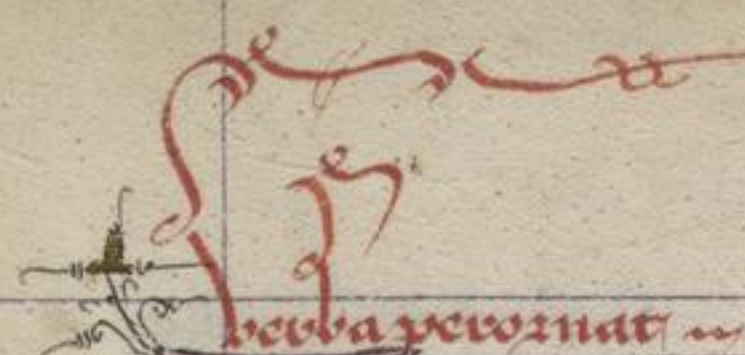 verba perornat